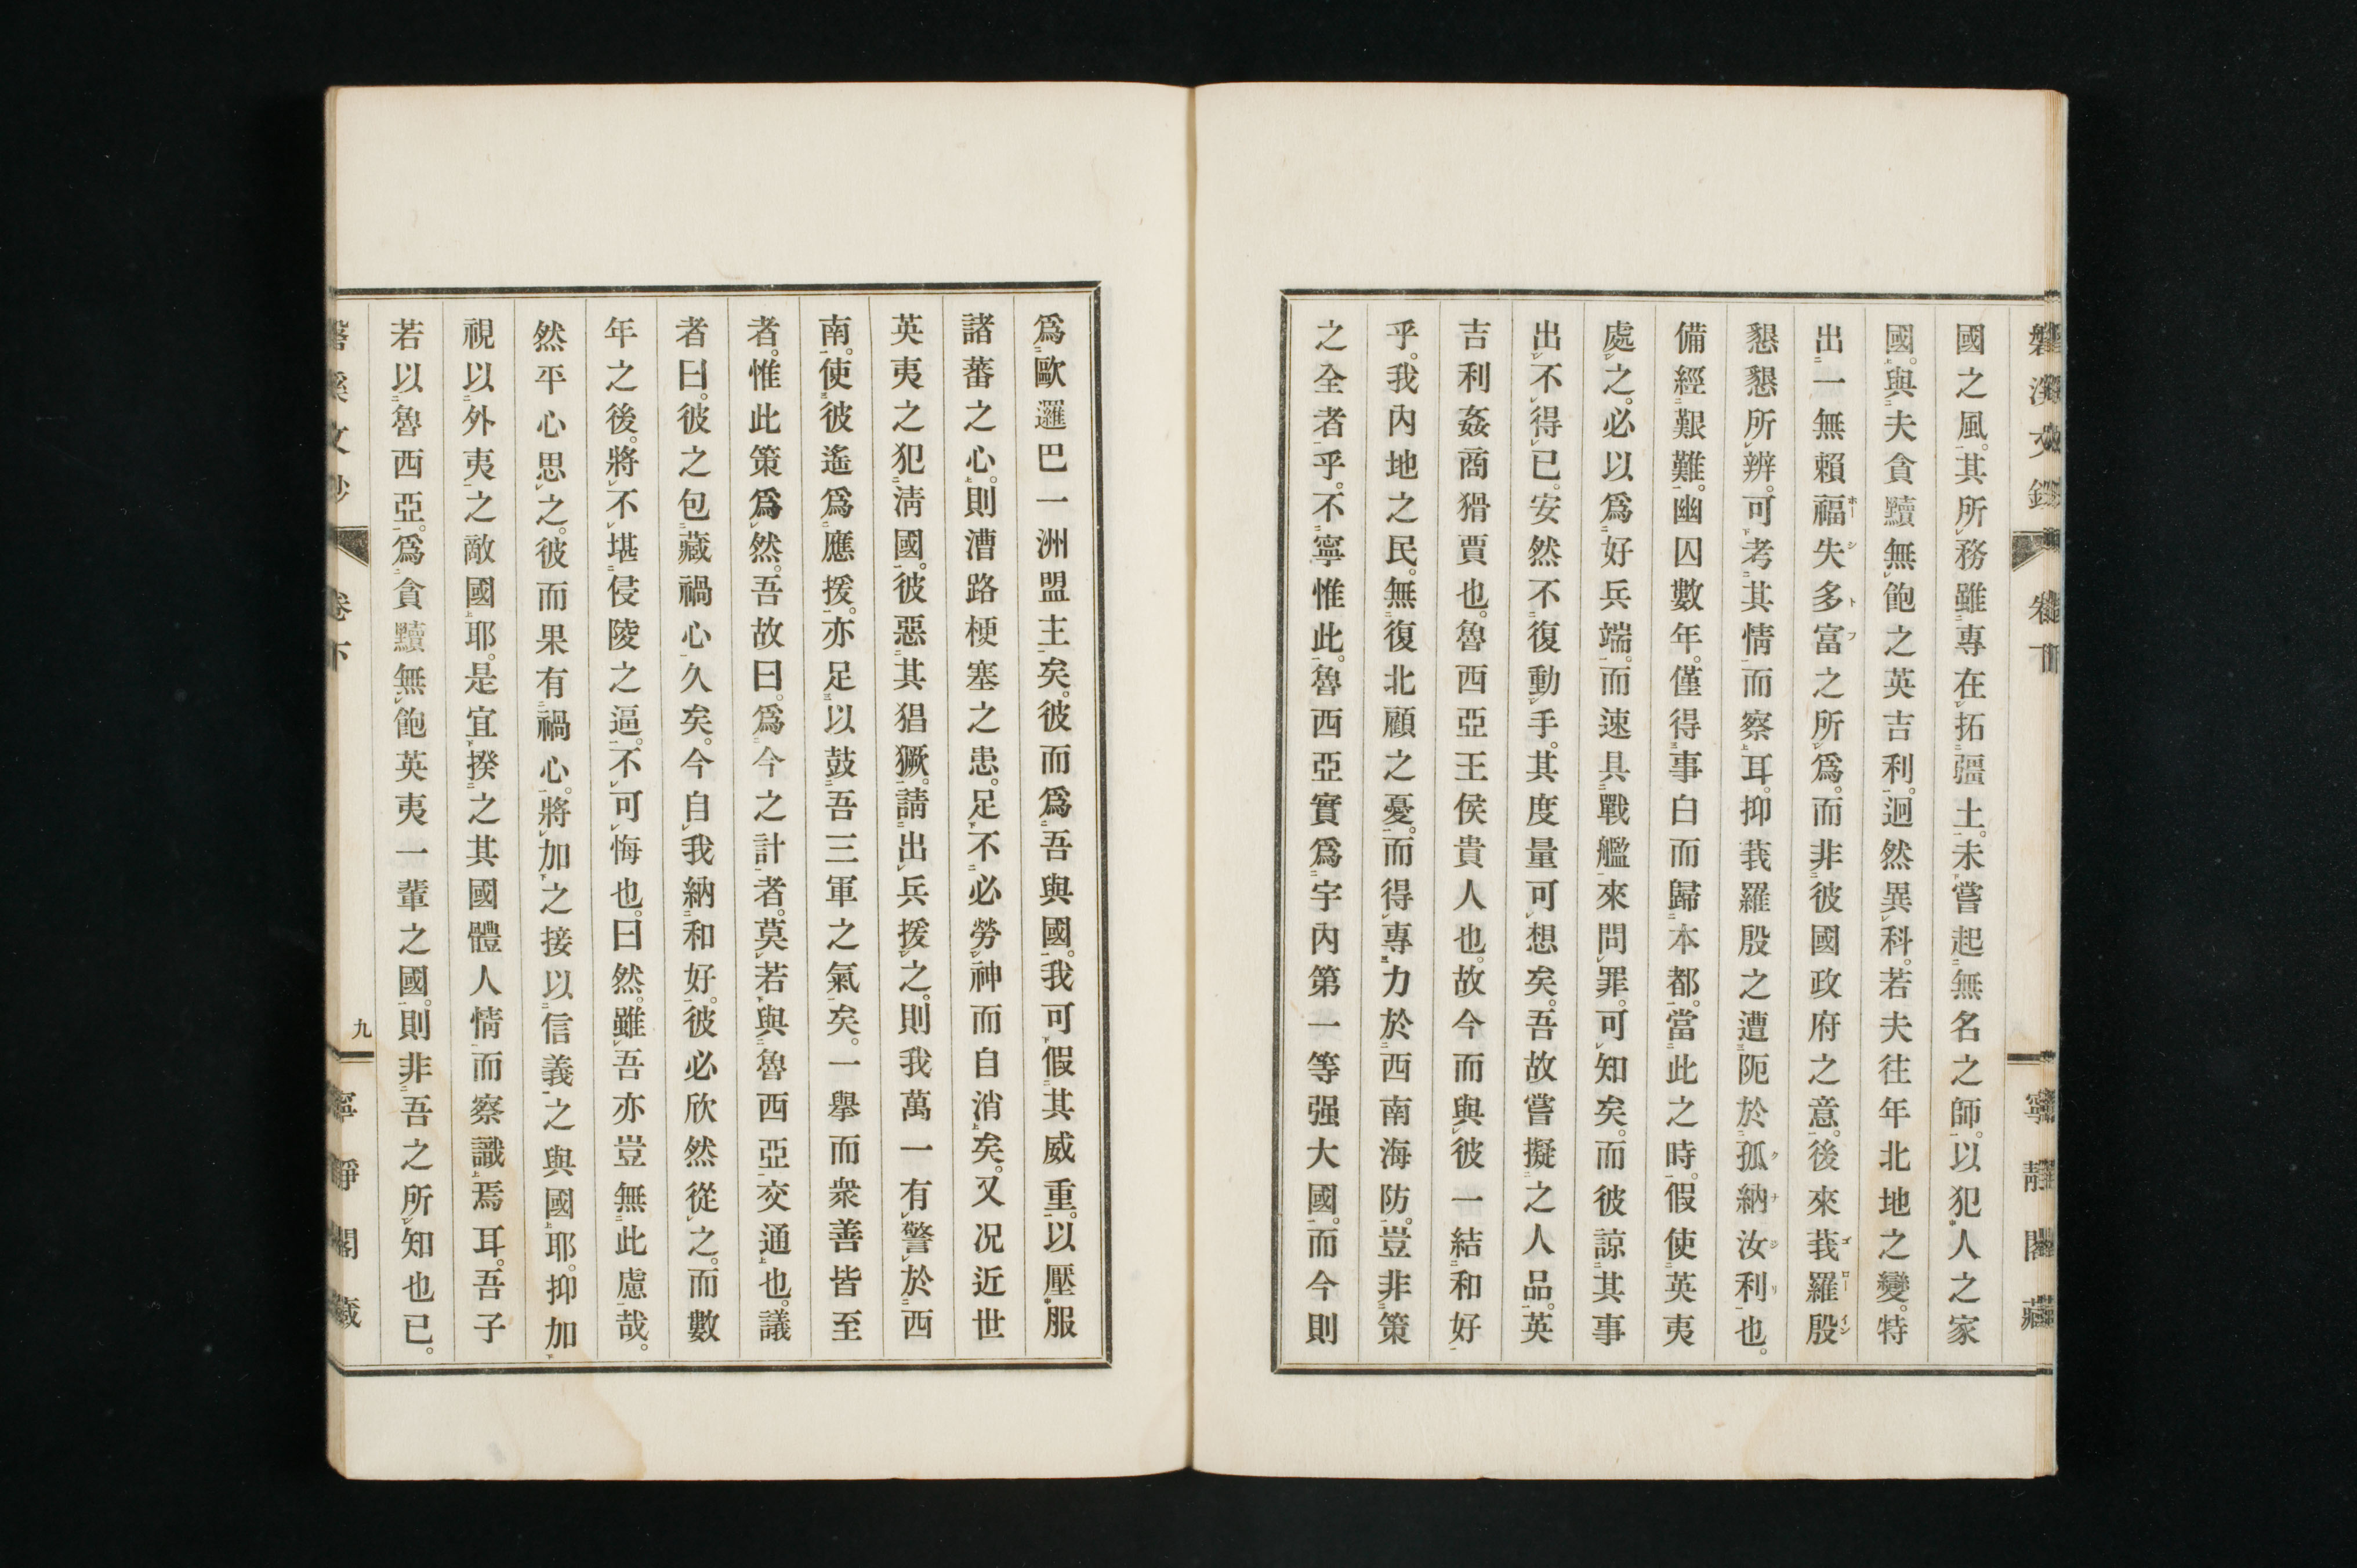 國之風。其所務雖專在拓疆土。未嘗起無名之師。以犯人之家
國。與夫貪黷無飽之英吉利。迥然異科。若夫往年北地之變。特
出一無賴福失多富之所爲。而非彼國政府之意。後來莪羅殷
懇懇所辨。可考其情而察耳。抑莪羅殷之遭阨於孤納汝利也。
備經艱難。幽囚數年。僅得事白而歸本都。當此之時。假使英夷
處之。必以爲好兵端。而速具戰艦來問罪。可知矣。而彼諒其事
出不得已。安然不復動手。其度量可想矣。吾故嘗擬之人品。英
吉利姦商猾賈也。魯西亞王侯貴人也。故今而與彼一結和好
乎。我內地之民。無復北顧之憂。而得專力於西南海防。豈非策
之全者乎。不寧惟此。魯西亞實爲宇內第一等强大國。而今則
爲歐邏巴一洲盟主矣。彼而爲吾與國。我可假其威重。以壓服
諸蕃之心。則漕路梗塞之患。足不必勞神而自消矣。又況近世
英夷之犯淸國。彼惡其猖獗。請出兵援之。則我萬一有警於西
南。使彼遙爲應援。亦足以鼓吾三軍之氣矣。一擧而衆善皆至
者。惟此策爲然。吾故曰。爲今之計者。莫若與魯西亞交通也。議
者曰。彼之包藏禍心久矣。今自我納和好。彼必欣然從之。而數
年之後。將不堪侵陵之逼。不可悔也。曰然。雖吾亦豈無此慮哉。
然平心思之。彼而果有禍心。將加之接以信義之與國耶。抑加
視以外夷之敵國耶。是宜揆之其國體人情而察識焉耳。吾子
若以魯西亞。爲貪黷無飽英夷一輩之國。則非吾之所知也已。
九